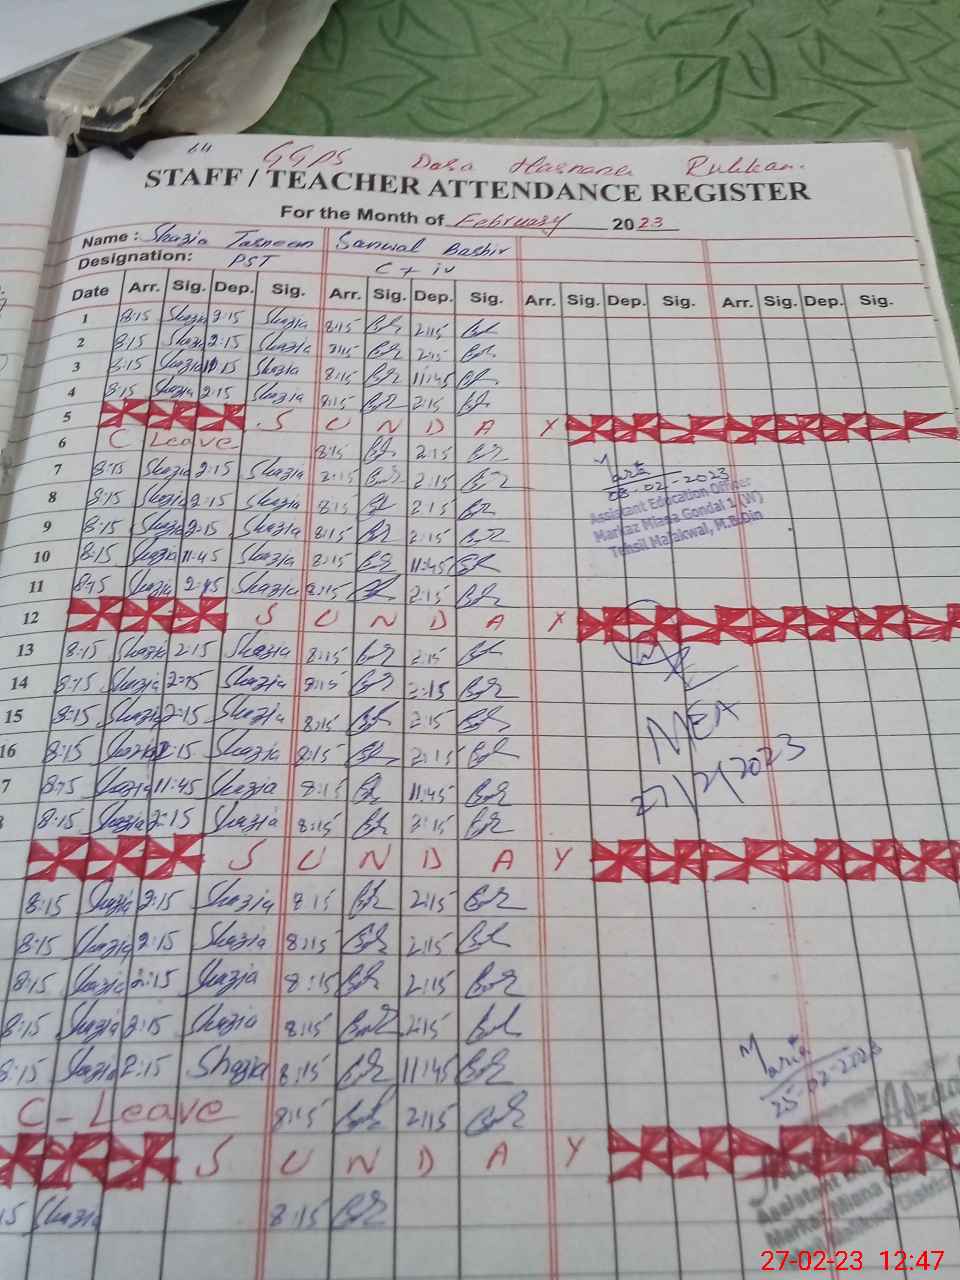 GGPS Dara Hasnana Rukkan
STAFF / TEACHER ATTENDANCE REGISTER
For the Month of February 2023
Name: Shazia Tasneem Sanwal Bashir
Designation: PST C + iv
Date Arr. Sig. Dep. Sig. Arr. Sig. Dep. Sig. Arr. Sig. Dep. Sig. Arr. Sig. Dep. Sig.
1 8:15 Shazia 2:15 Shazia 8:15 2:15
2 8:15 Shazia 2:15 Shazia 2:15
3 8:15 Shazia Shazia 8:15 11:45
4 8:15 Shazia 2:15 Shazia 8:15 2:15
5 S U N D A Y
6 C Leave 8:15 2:15
7 8:15 Shazia 2:15 Shazia 8:15 2:15
8 8:15 Shazia 2:15 Shazia 8:15 2:15
9 8:15 Shazia 2:15 Shazia 8:15 2:15
10 8:15 Shazia 11:45 Shazia 8:15 11:45
11 8:15 Shazia 2:15 Shazia 8:15 2:15
12 S U N D A Y
13 8:15 Shazia 2:15 Shazia 8:15 2:15
14 8:15 Shazia 2:15 Shazia 8:15 2:15
15 8:15 Shazia 2:15 Shazia 8:15 2:15
16 8:15 Shazia 2:15 Shazia 8:15 2:15
7 8:15 Shazia 11:45 Shazia 8:15 11:45
8:15 Shazia 2:15 Shazia 8:15 2:15
S U N D A Y
8:15 Shazia 2:15 Shazia 8:15 2:15
8:15 Shazia 2:15 Shazia 8:15 2:15
8:15 Shazia 2:15 Shazia 8:15 2:15
8:15 Shazia 2:15 Shazia 8:15 2:15
8:15 Shazia 2:15 Shazia 8:15 11:45
C - Leave 8:15 2:15
S U N D A Y
15 Shazia 8:15
Maria
08-02-2023
Assistant Education Officer
Markaz Miana Gondal 1 (W)
Tehsil Malakwal, M.B.Din
MEA
27/2/2023
Maria
25-02-2023
Assistant
Markaz Miana
27-02-23 12:47